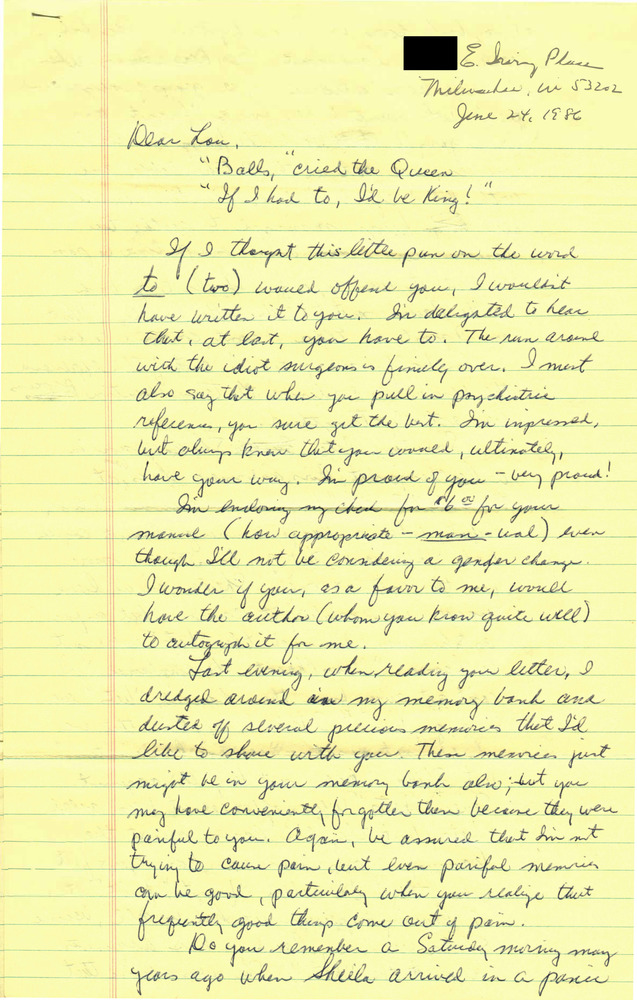 E. Irving Place
Milwaukee, WI 53202
June 24, 1986
Dear Lou,
"Balls," cried the Queen
"If I had to, I'd be King!"
If I thought this little pun on the word
to (two) would offend you, I wouldn't
have written it to you. I'm delighted to hear
that, at last, you have to. The run around
with the idiot surgeons is finally over. I must
also say that when you pull in psychiatric
references, you sure get the best. I'm impressed,
but always knew that you would, ultimately,
have your way. I'm proud of you - very proud!
I'm enclosing my check for $6.00 for your
manual (how appropriate - man-ual) even
though I'll not be considering a gender change.
I wonder if you, as a favor to me, would
have the author (whom you know quite well)
to autograph it for me.
Last evening, when reading your letter, I
dredged around in my memory bank and
dusted off several precious memories that I'd
like to share with you. These memories just
might be in your memory bank also; but you
may have conveniently forgotten them because they were
painful to you. Again, be assured that I'm not
trying to cause pain, but even painful memories
can be good, particularly when you realize that
frequently good things come out of pain.
Do you remember a Saturday morning many
years ago when Sheila arrived in a panic